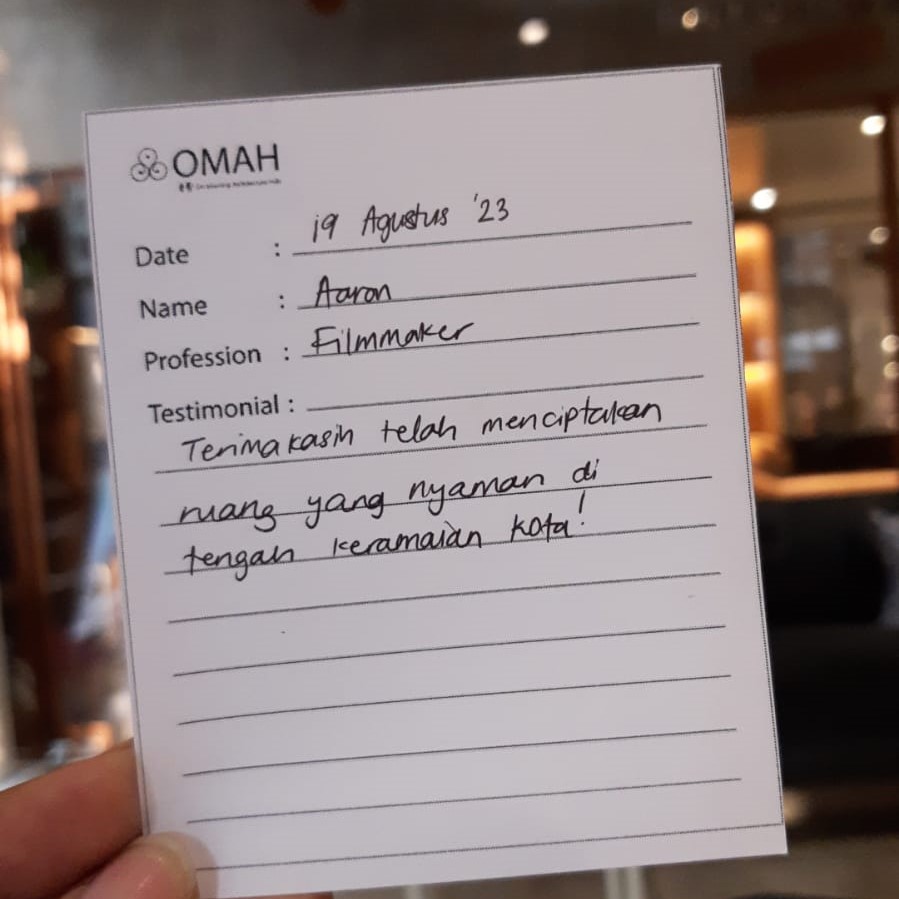 OMAH
Date : 19 Agustus '23
Name : Aaron
Profession : Filmmaker
Testimonial :
Terimakasih telah menciptakan
ruang yang nyaman di
tengah keramaian kota!